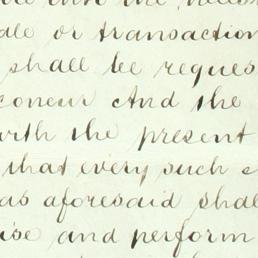 ale or transaction
shall be reques
coneur And the
orth the present
that every such s
as aforesaid shal
ise and perform